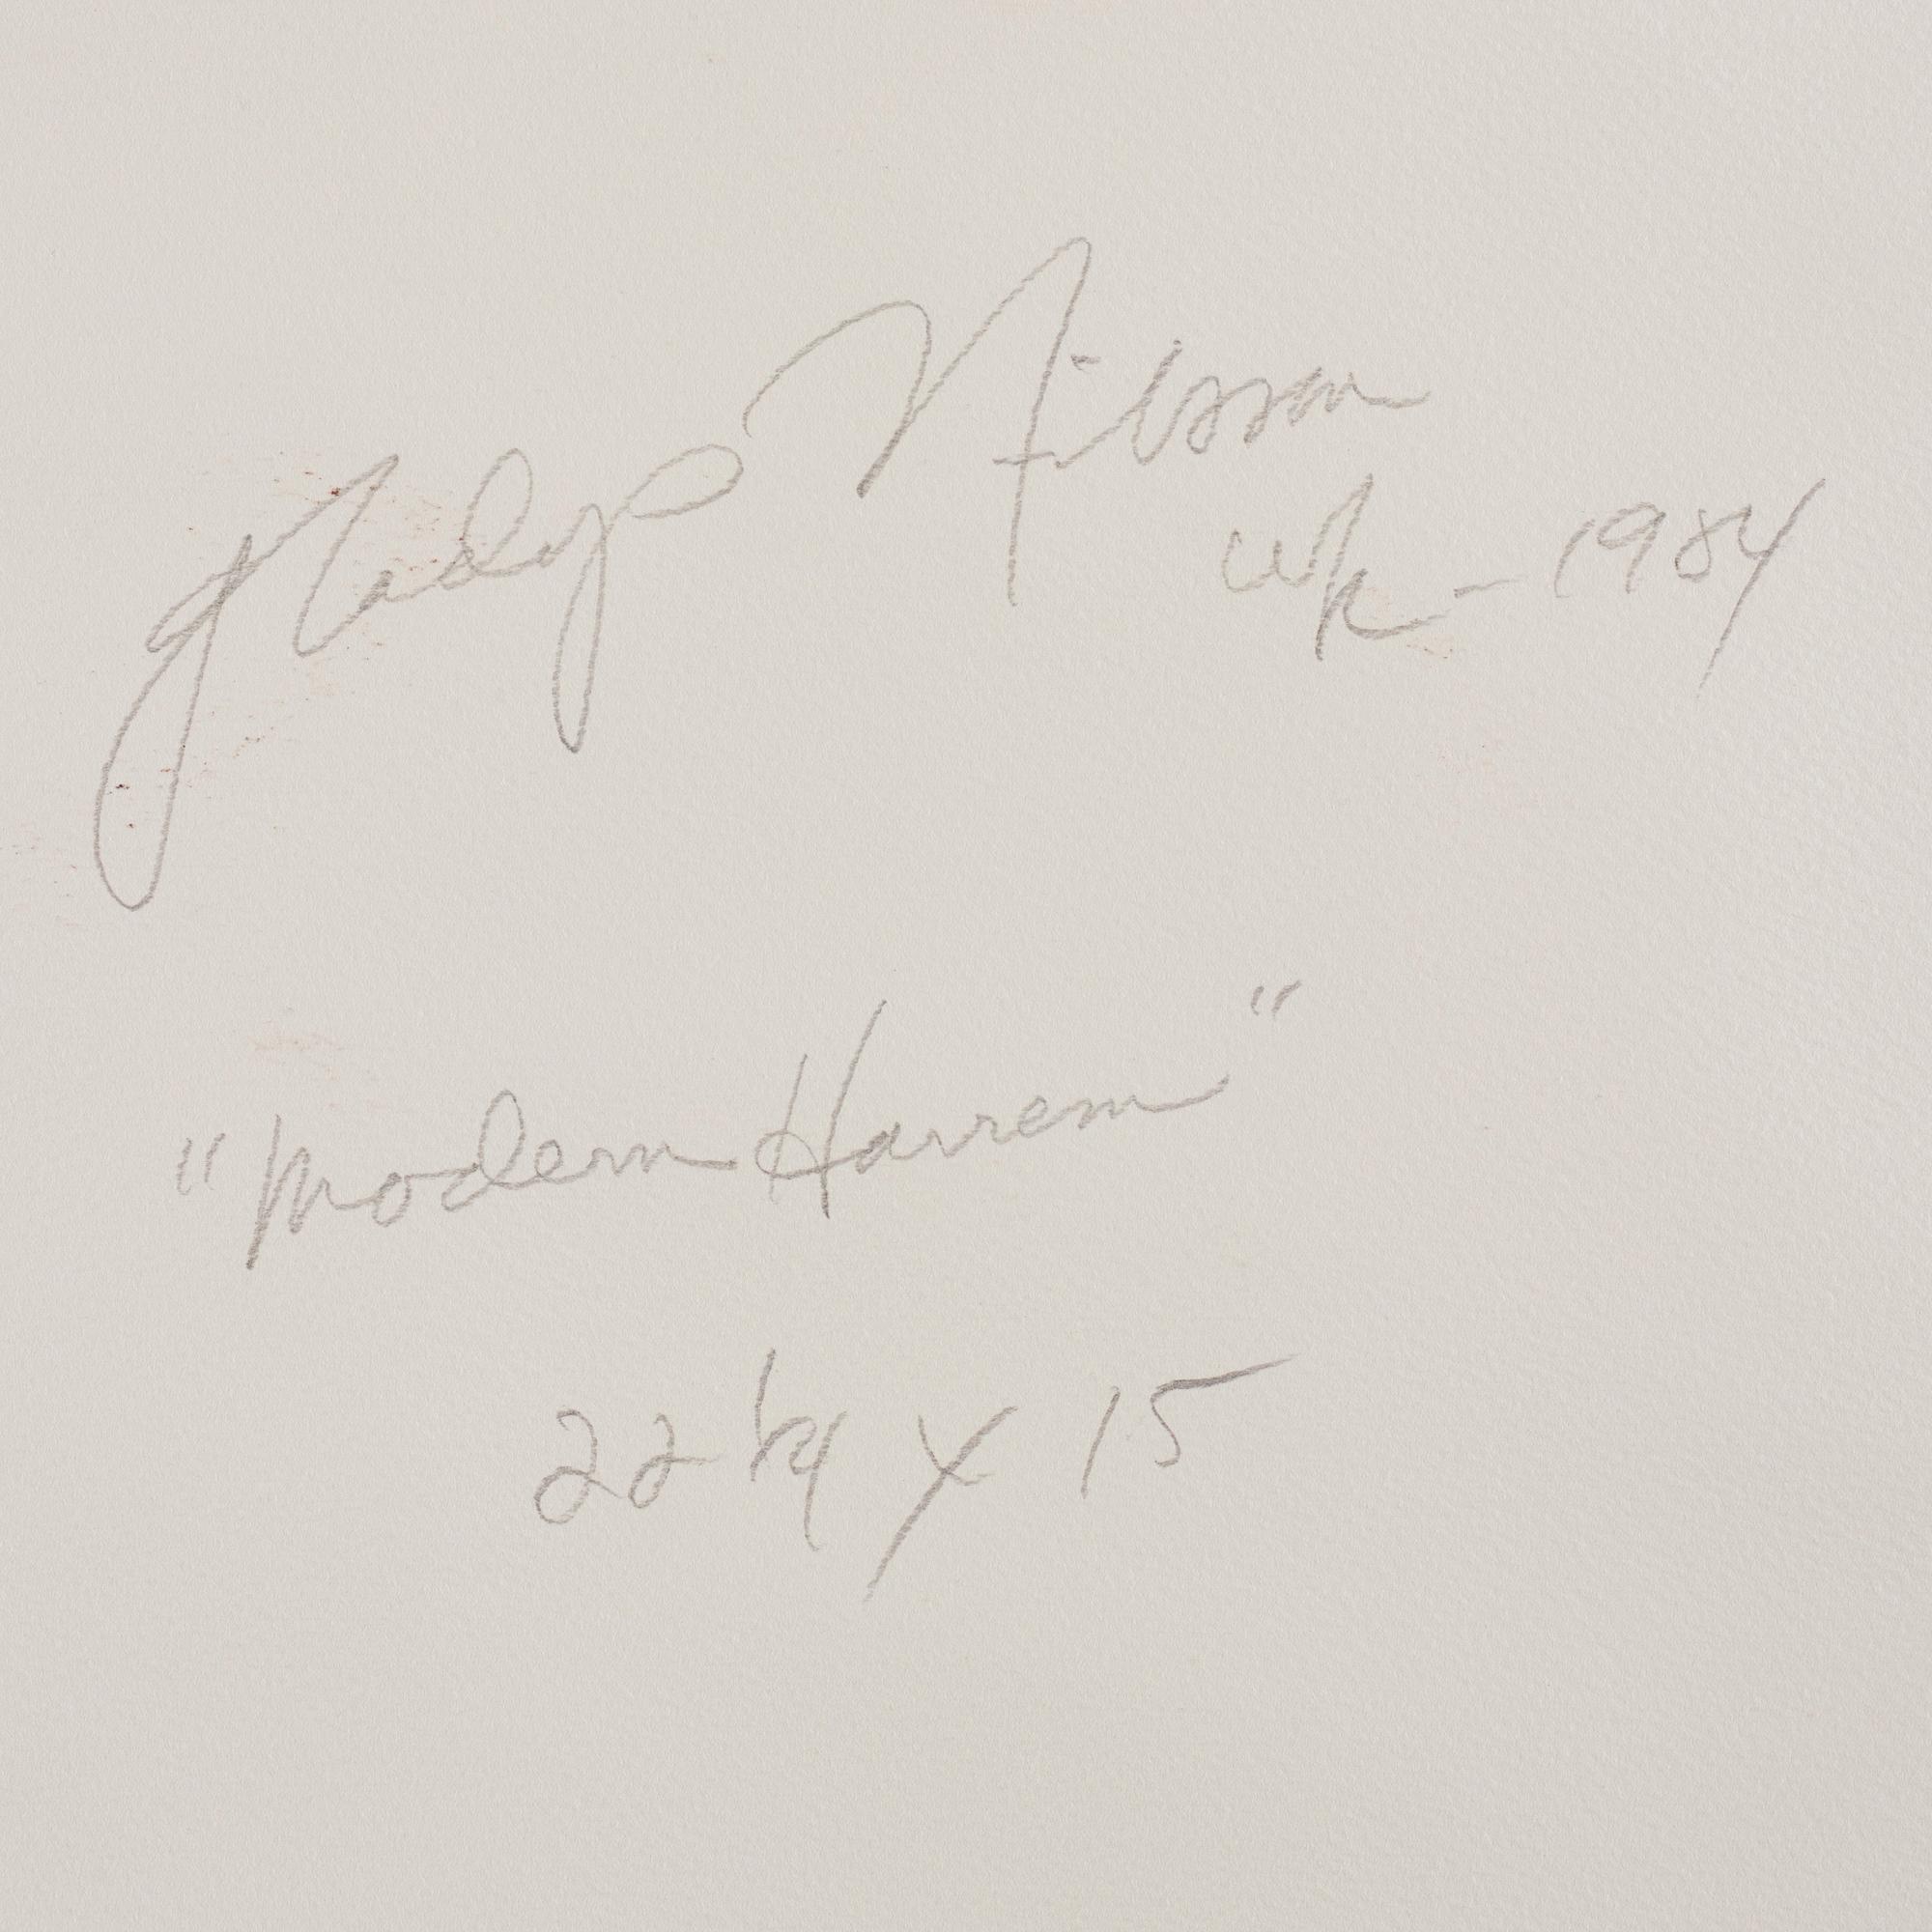 Gladys Nilsson
- 1984
"Modern Harrem"
22 1/4 x 15